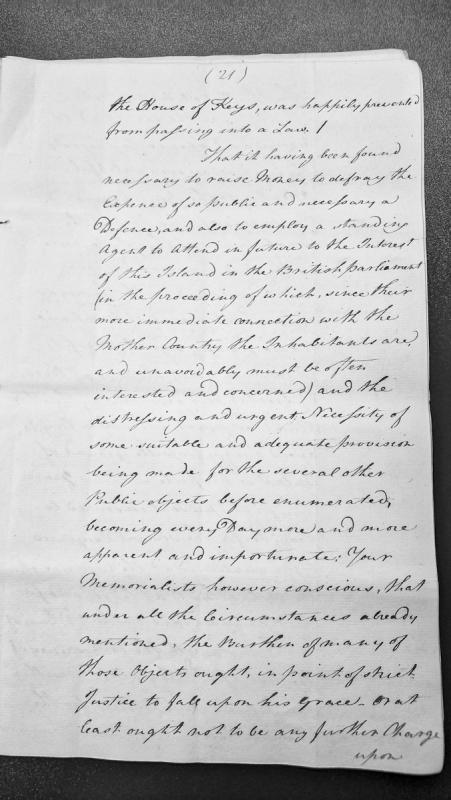 (21)
the House of Keys, was happily prevented
from passing into a Law. /
That it having been found
necessary to raise Money to defray the
Expence of so public and necessary a
Defence, and also to employ a standing
Agent to Attend in future to the Interest
of this Island in the British parliament
(in the proceeding of which, since their
more immediate connection with the
Mother Country the Inhabitants are,
and unavoidably must be often
interested and concerned) and the
distressing and urgent Necessity of
some suitable and adequate provision
being made for the several other
Public objects before enumerated,
becoming every Day more and more
apparent and importunate; Your
Memorialists however conscious, that
under all the Circumstances already
mentioned, the Burthen of many of
those Objects ought, in point of strict
Justice to fall upon his Grace - or at
least ought not to be any further Charge
upon